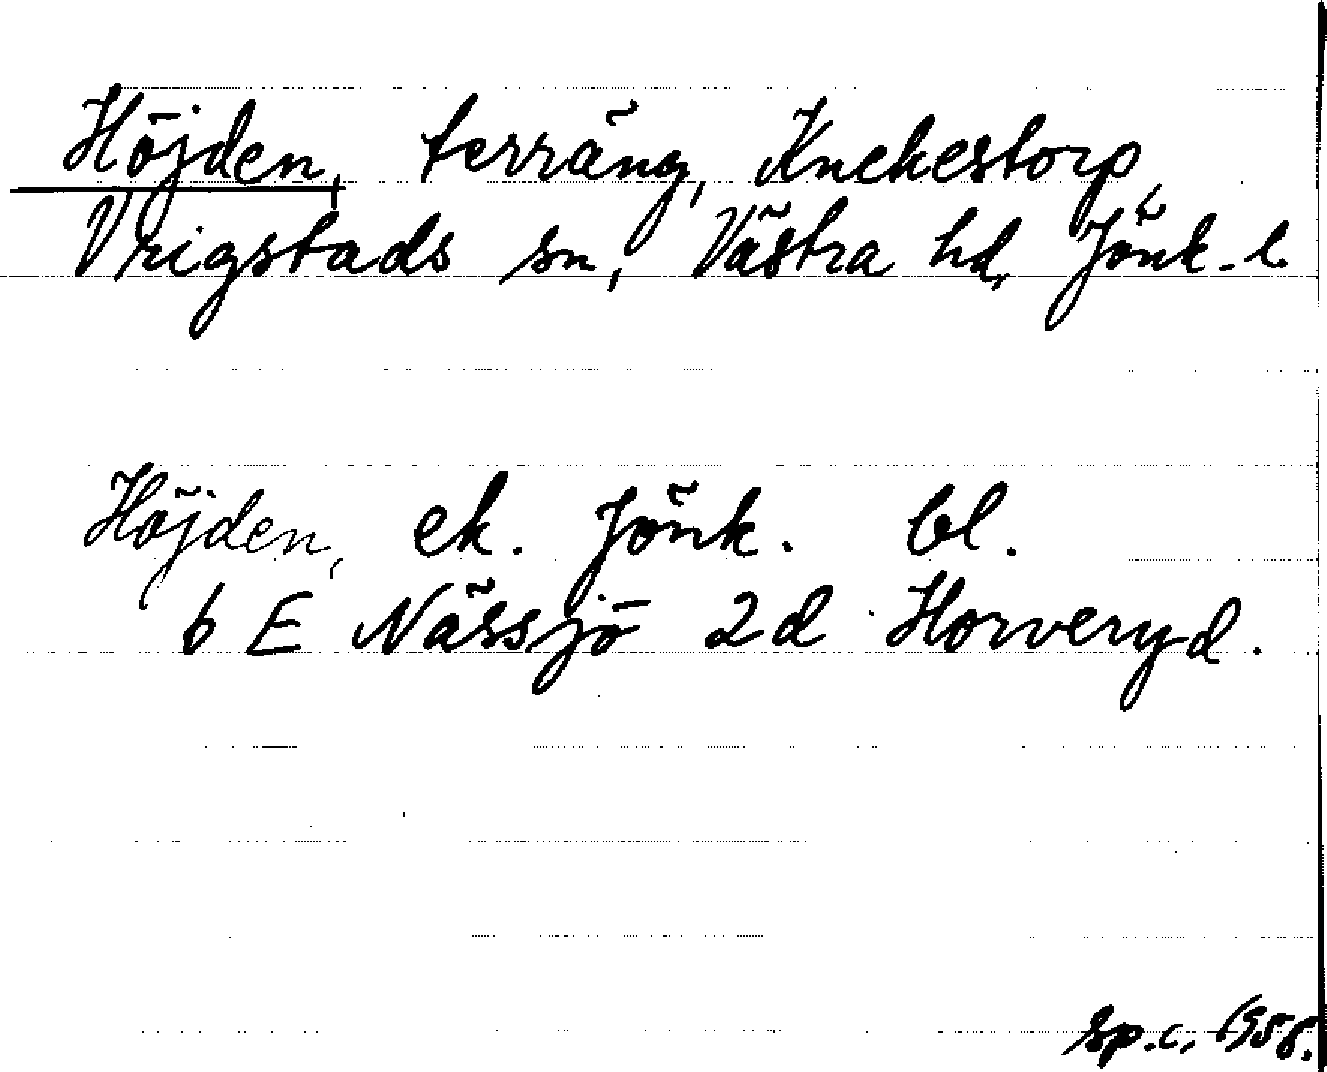 Höjden, terräng, Knekestorp,
Vrigstads sn, Västra hd, Jönk. l.
Höjden, ek. Jönk. bl.
6 E Nässjö 2d Horveryd.
Sp.c. 1958.